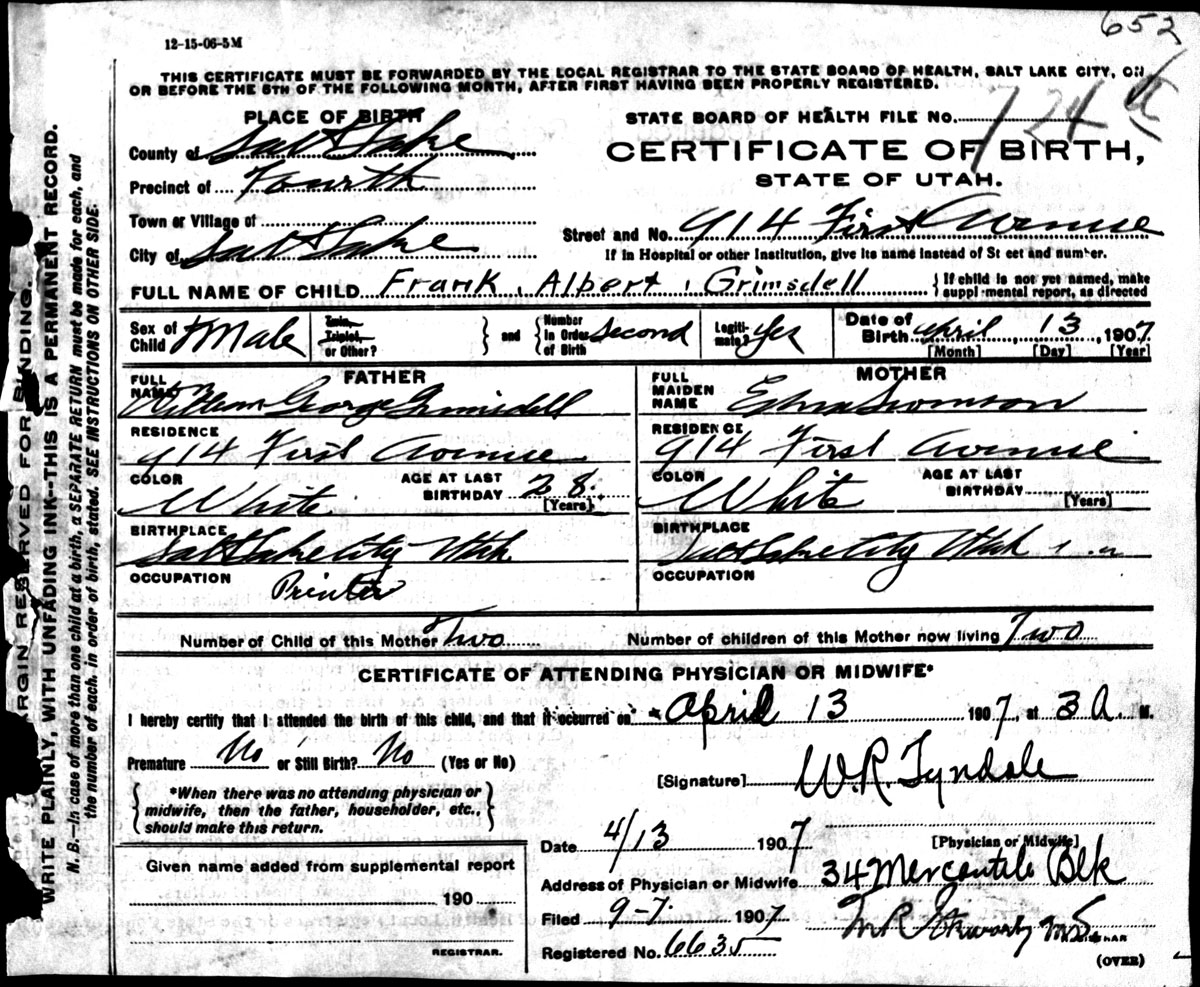 652
12-15-06-5M
THIS CERTIFICATE MUST BE FORWARDED BY THE LOCAL REGISTRAR TO THE STATE BOARD OF HEALTH, SALT LAKE CITY, ON
OR BEFORE THE 5TH OF THE FOLLOWING MONTH, AFTER FIRST HAVING BEEN PROPERLY REGISTERED.
PLACE OF BIRTH
County of Salt Lake
Precinct of Fourth
Town or Village of
City of Salt Lake
STATE BOARD OF HEALTH FILE No.
CERTIFICATE OF BIRTH,
STATE OF UTAH.
Street and No. 914 First Avenue
If in Hospital or other Institution, give its name instead of St eet and number.
FULL NAME OF CHILD Frank Albert Grimsdell
{If child is not yet named, make
suppl mental report, as directed
Sex of Child Male
Twin, Triplet, or Other?
and
Number in Order of Birth second
Legiti- mate? Yes
Date of Birth April 13, 1907
[Month] [Day] [Year]
FATHER
FULL NAME William George Grimsdell
RESIDENCE
914 First Avenue
COLOR White
AGE AT LAST BIRTHDAY 28
[Years]
BIRTHPLACE
Salt Lake City Utah
OCCUPATION
Printer
MOTHER
FULL MAIDEN NAME Edna Swanson
RESIDENCE
914 First Avenue
COLOR White
AGE AT LAST BIRTHDAY
[Years]
BIRTHPLACE
Salt Lake City Utah
OCCUPATION
Number of Child of this Mother Two
Number of children of this Mother now living Two
CERTIFICATE OF ATTENDING PHYSICIAN OR MIDWIFE*
I hereby certify that I attended the birth of this child, and that it occurred on April 13 1907, at 3 A. M.
Premature No or Still Birth? No (Yes or No)
*When there was no attending physician or
midwife, then the father, householder, etc.,
should make this return.
[Signature] W.R. Tyndale
Date 4/13 1907
[Physician or Midwife]
Address of Physician or Midwife 34 Mercantile Blk
Filed 9-7 1907
Registered No. 6635
REGISTRAR
(OVER)
Given name added from supplemental report
190
REGISTRAR.
MARGIN RESERVED FOR BINDING.
WRITE PLAINLY, WITH UNFADING INK--THIS IS A PERMANENT RECORD.
N. B.—In case of more than one child at a birth, a SEPARATE RETURN must be made for each, and
the number of each, in order of birth, stated. SEE INSTRUCTIONS ON OTHER SIDE.